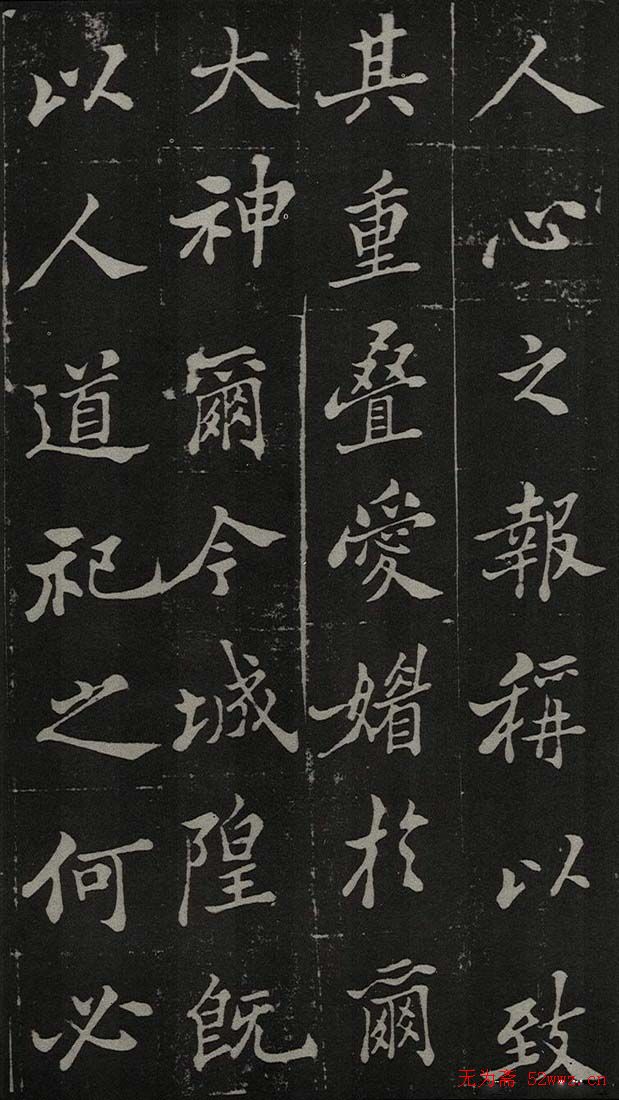 人心之報稱以致
其重疊愛媚於爾
大神爾今城隍既
以人道祀之何必
无为斋 52wwz.cn